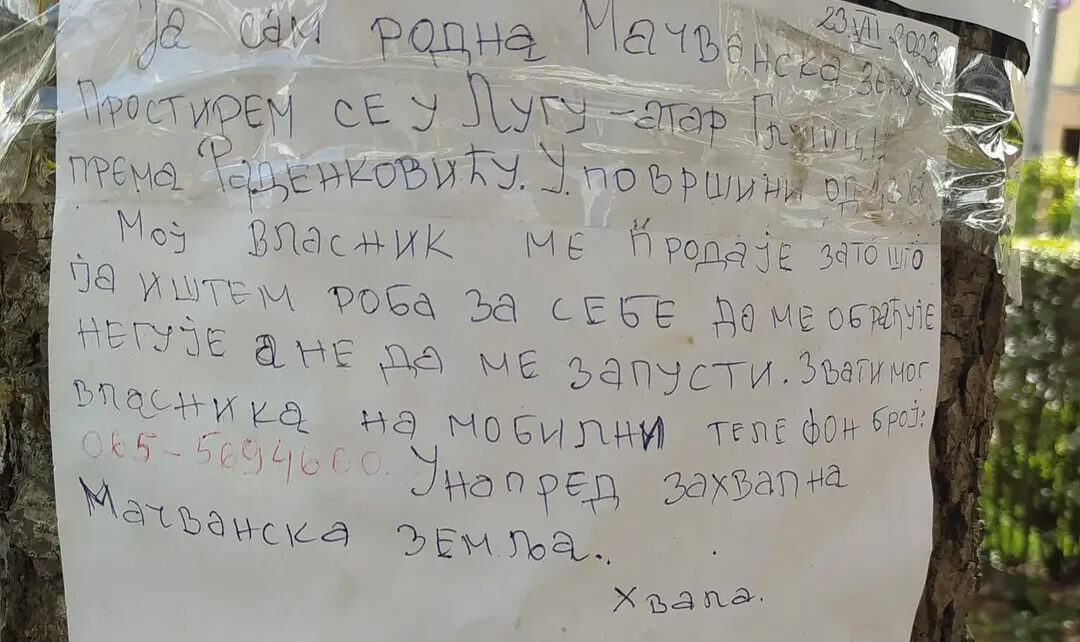 Ја сам родна Мачванска земља
23 VII 2023
Простирем се у Лугу - атар
према Раденковићу. У површини од
Мој власник ме продаје зато што
ја иштем роба за себе да ме обрађује
негује а не да ме запусти. Звати мог
власника на мобилни телефон број:
065-5694660. Унапред захвална
Мачванска земља..
Хвала.